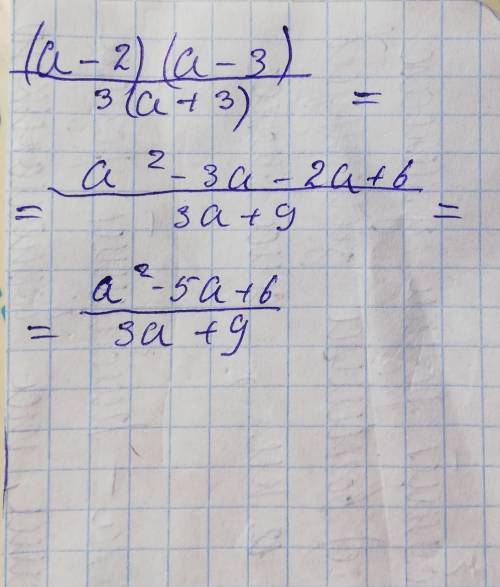 (a - 2) (a - 3)
3(a + 3) =
= a² - 3a - 2a + 6
3a + 9 =
= a² - 5a + 6
3a + 9